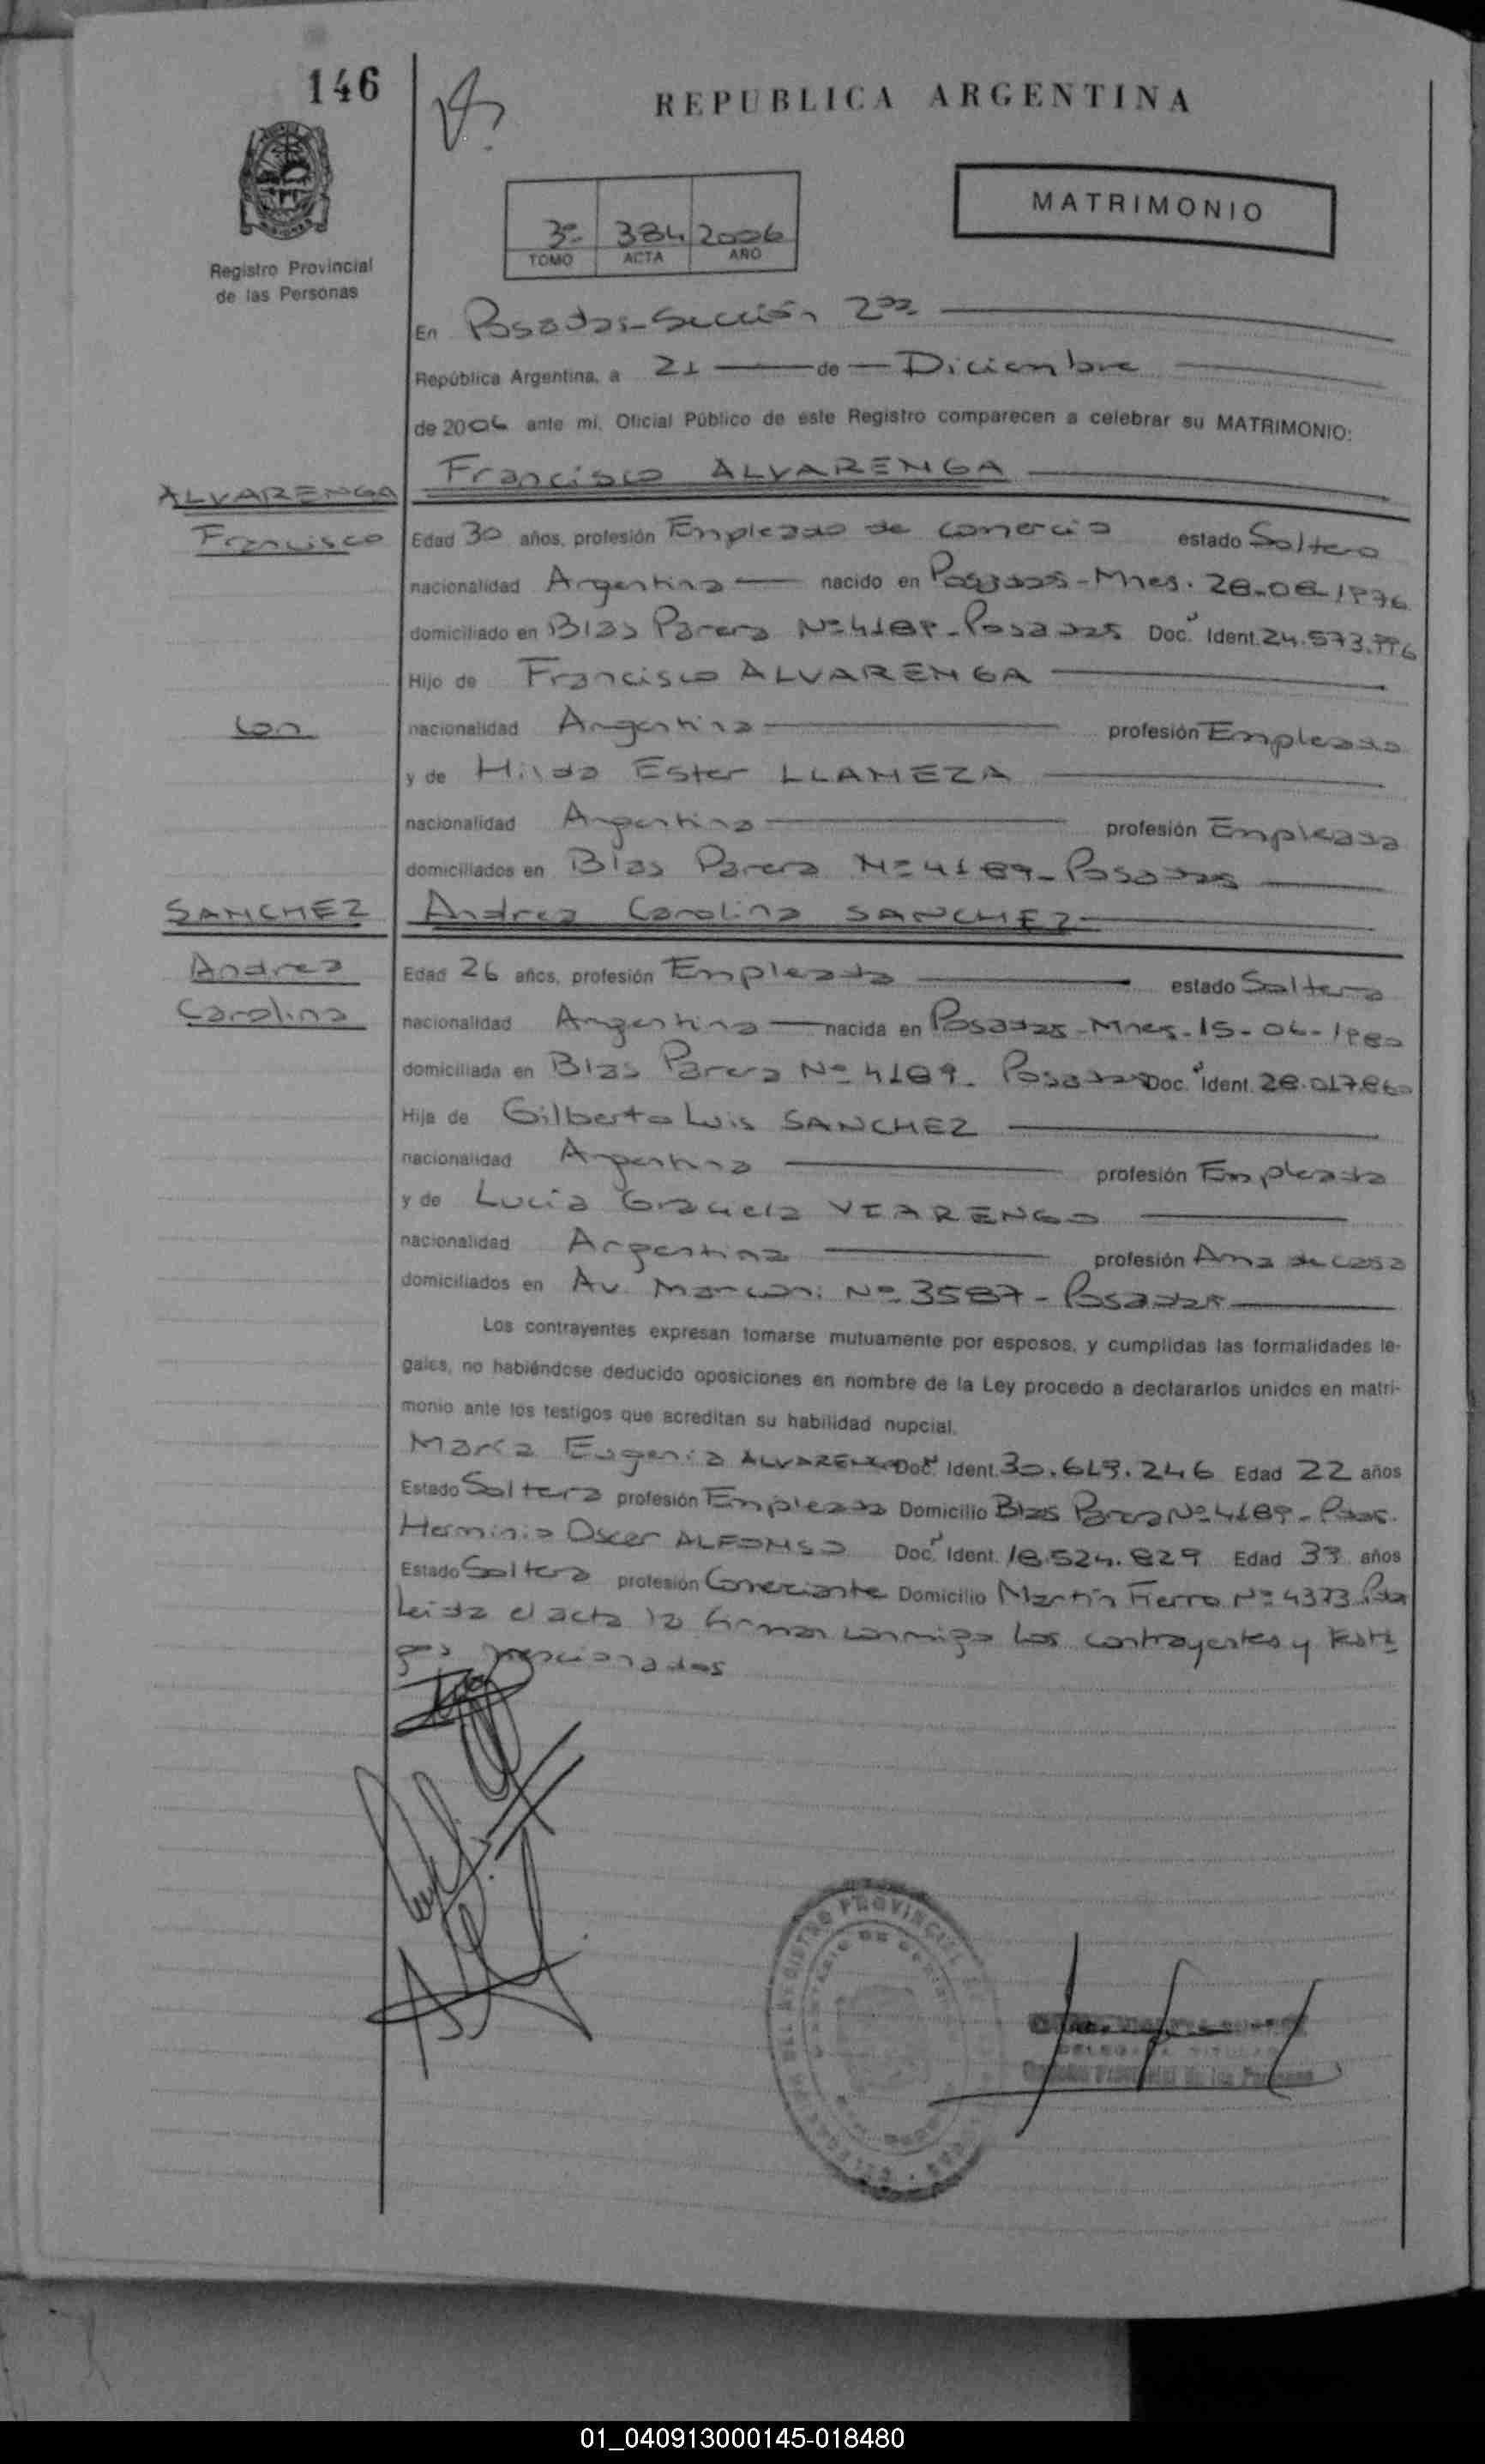 146
REPUBLICA ARGENTINA
MATRIMONIO
3º 384 2006
TOMO ACTA AÑO
Registro Provincial
de las Personas
En Posadas-Sección 2da
República Argentina, a 21 de Diciembre
de 2006 ante mí, Oficial Público de este Registro comparecen a celebrar su MATRIMONIO:
Francisco ALVARENGA
ALVARENGA
Francisco
Edad 30 años, profesión Empleado de comercio estado Soltero
nacionalidad Argentina nacido en Posadas-Mnes. 28-08-1976
domiciliado en Blas Parera Nº 4189-Posadas Doc. Ident. 24.573.996
Hijo de Francisco ALVARENGA
con
nacionalidad Argentina profesión Empleado
y de Hilda Ester LLAMEZA
nacionalidad Argentina profesión Empleada
domiciliados en Blas Parera Nº 4189-Posadas
SANCHEZ
Andrea Carolina SANCHEZ
Andrea
Carolina
Edad 26 años, profesión Empleada estado Soltera
nacionalidad Argentina nacida en Posadas-Mnes-15-06-1980
domiciliada en Blas Parera Nº 4189-Posadas Doc. Ident. 28.017.860
Hija de Gilberto Luis SANCHEZ
nacionalidad Argentina profesión Empleado
y de Lucia Graciela VIARENGO
nacionalidad Argentina profesión Ama de casa
domiciliados en Av. Marconi Nº 3587-Posadas
Los contrayentes expresan tomarse mutuamente por esposos, y cumplidas las formalidades le-
gales, no habiéndose deducido oposiciones en nombre de la Ley procedo a declararlos unidos en matri-
monio ante los testigos que acreditan su habilidad nupcial.
María Eugenia ALVARENGA Doc. Ident. 30.619.246 Edad 22 años
Estado Soltera profesión Empleada Domicilio Blas Parera Nº 4189-Pdas.
Herminio Oscar ALFONSO Doc. Ident. 18.524.829 Edad 39 años
Estado Soltero profesión Comerciante Domicilio Martín Fierro Nº 4373 Pdas
Leida el acta la firman conmigo los contrayentes y testi
gos mencionados
01_040913000145-018480